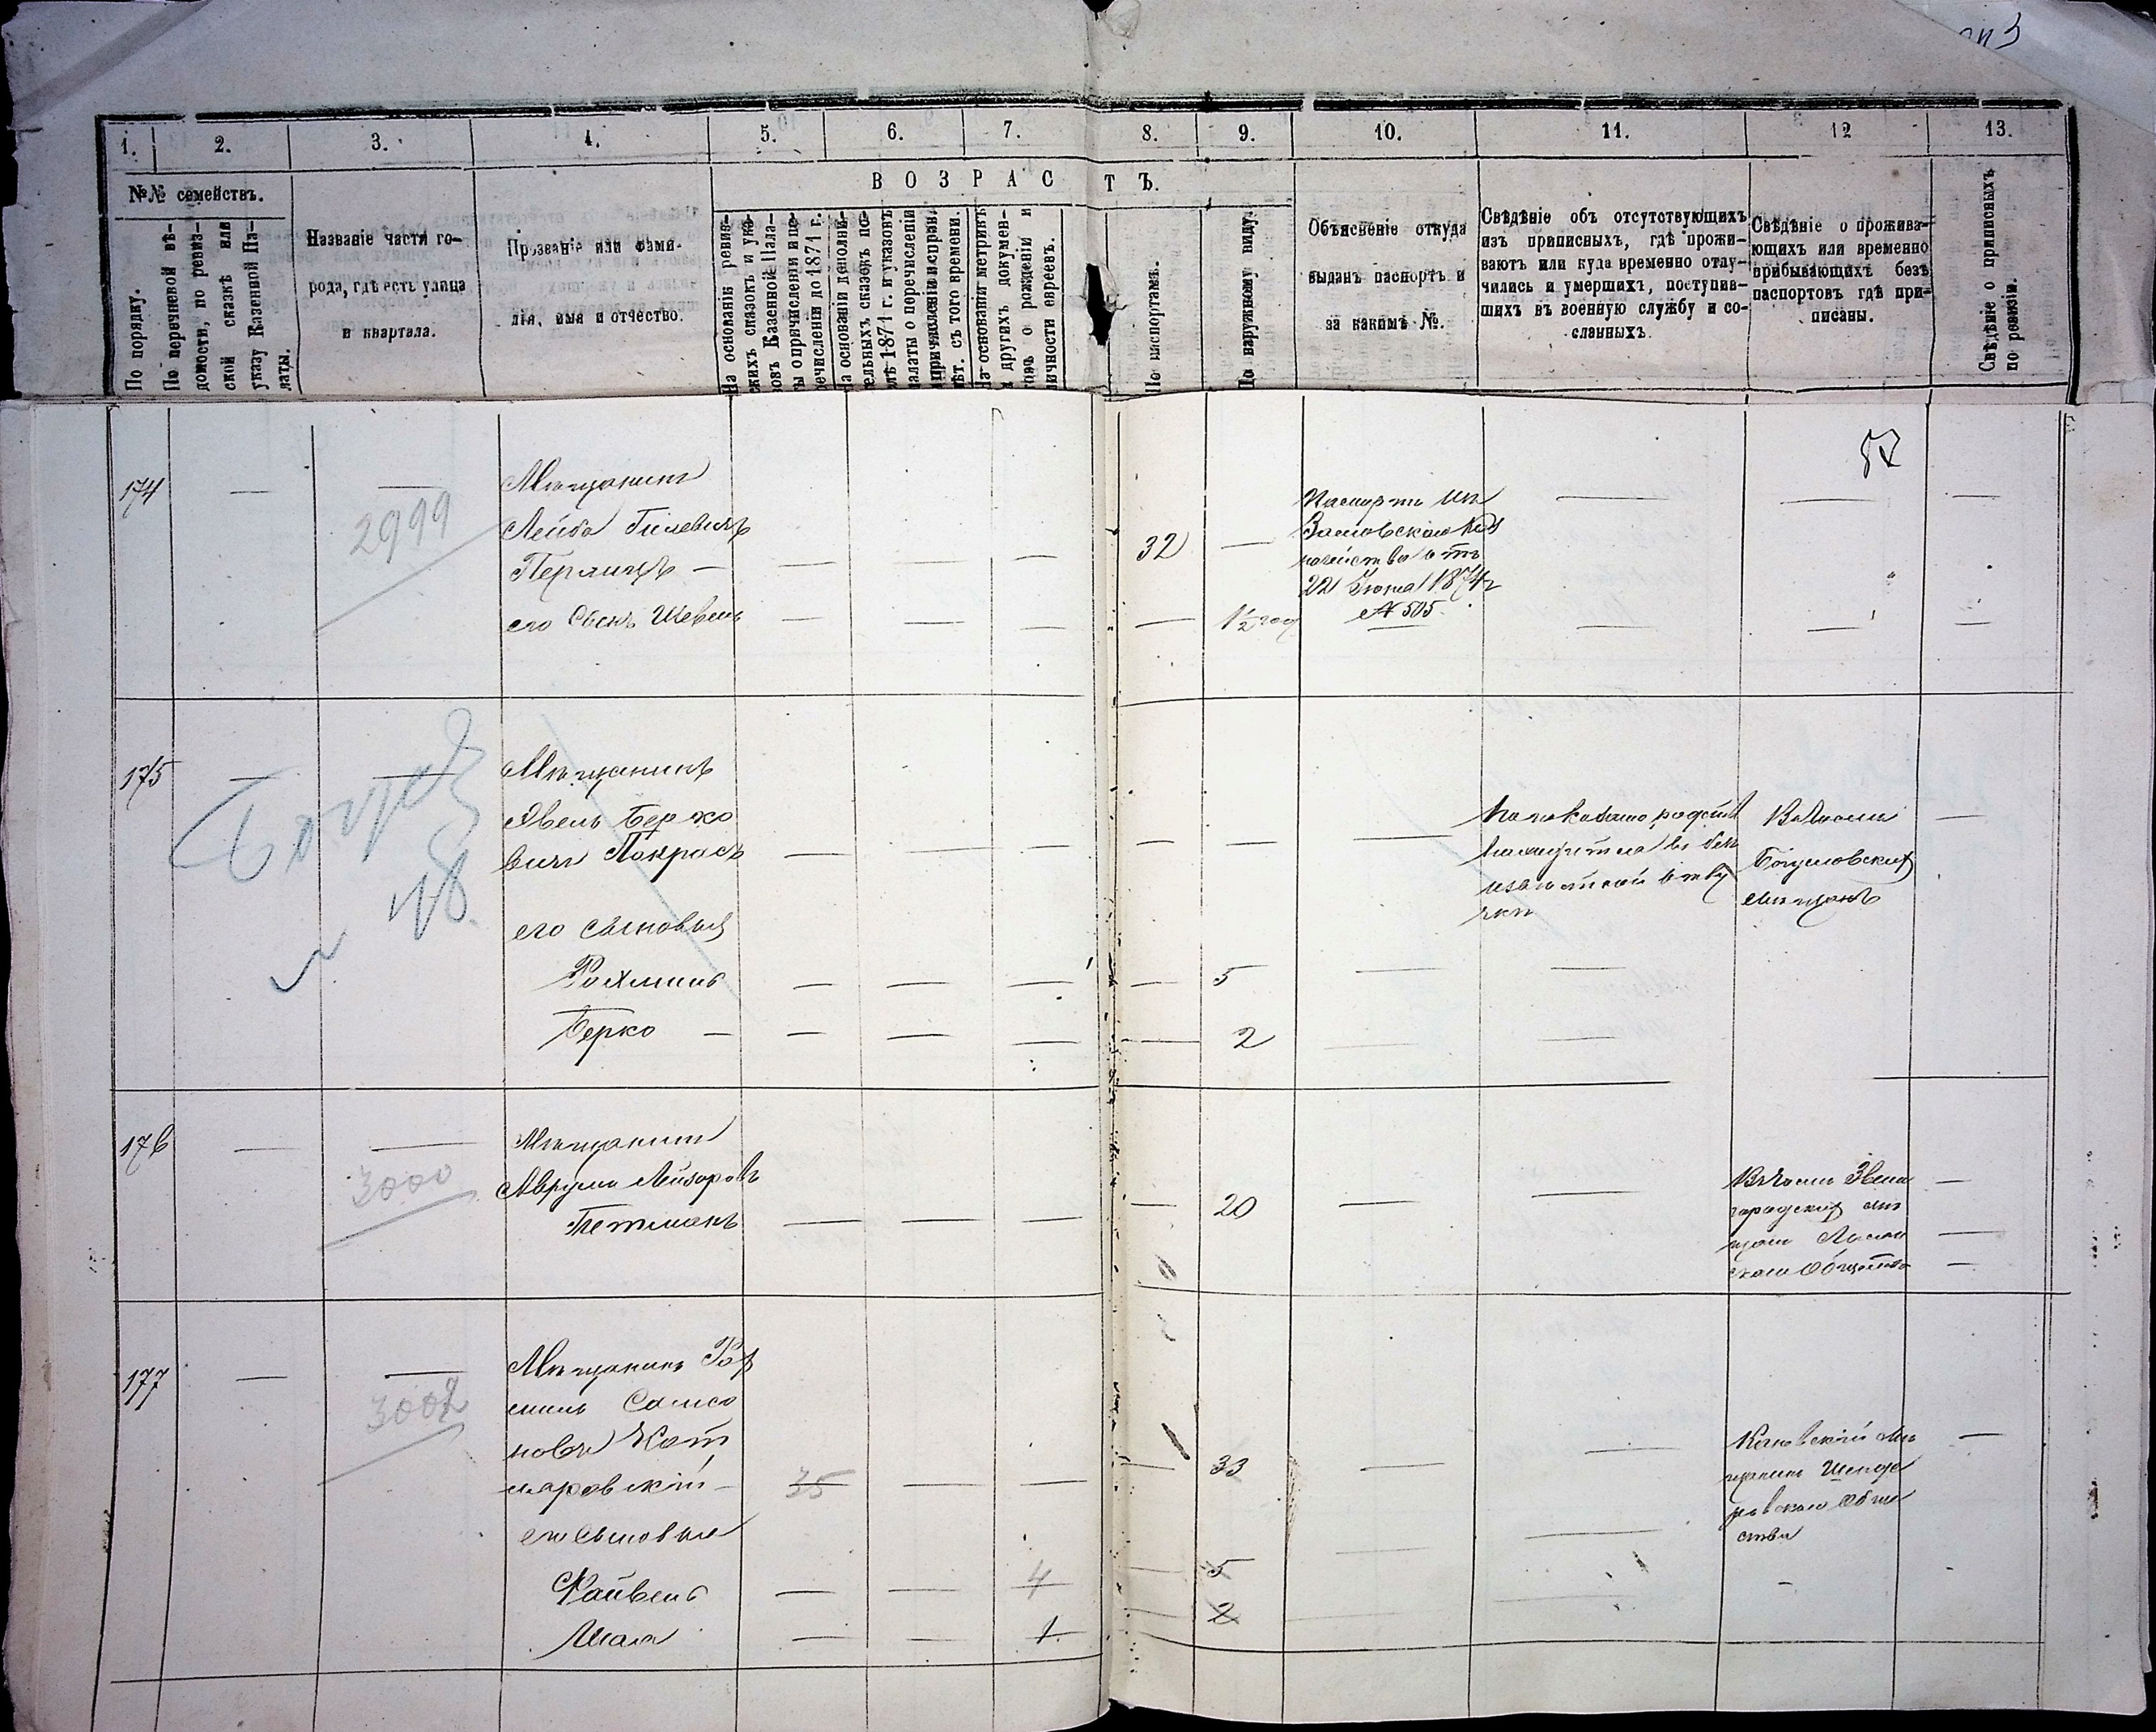 1.
2.
3.
4.
5.
6.
7.
8.
9.
10.
11.
12
13.
№№ семействъ.
ВОЗРАСТЪ.
По порядку.
По перечневой вѣ-
домости, по ревиз-
ской сказкѣ или
указу Казенной Па-
латы.
Названіе части го-
рода, гдѣ есть улица
и квартала.
Прозваніе или фами-
лія, имя и отчество.
На основаніи ревиз-
скихъ сказокъ и ука-
зовъ Казенной Пала-
ты о причисленіи и пе-
речисленіи до 1871 г.
На основаніи дополни-
тельныхъ сказокъ по-
слѣ 1871 г. и указовъ
палаты о перечисленіи
и причисленіи и исправ.
лѣт. съ того времени.
На основаніи метрикъ
и другихъ докумен-
товъ о рожденіи и
личности евреевъ.
По паспортамъ.
По наружному виду.
Объясненіе откуда
выданъ паспортъ и
за какимъ №.
Свѣдѣніе объ отсутствующихъ
изъ приписныхъ, гдѣ прожи-
ваютъ или куда временно отлу-
чились и умершихъ, поступив-
шихъ въ военную службу и со-
сланныхъ.
Свѣдѣніе о прожива-
ющихъ или временно
прибывающихъ безъ
паспортовъ гдѣ при-
писаны.
Свѣдѣніе о приписныхъ
по ревизіи.
174
2999
Мѣщанинъ
Лейба
его Сынъ Шевель
32
1½ год
Паспортъ
22 1874 г
№ 505.
175
Мѣщанинъ
Явель Берко
вичъ Покрасъ
его сыновья
Рахмиль
5
Берко
2
Богуславскихъ
мѣщанъ
176
3000
Мѣщанинъ
Аврумъ Лейзоровъ
Тетманъ
20
Звени
городских мѣ
щан
скаго Общества
177
3002
Мѣщанинъ Рах
миль Самсо
новъ Кот
ляровскій
35
33
его сыновья
Файвель
4
5
Шая
1
2
Каневскій мѣ
щанинъ Шенде
ровскаго Обще
ства